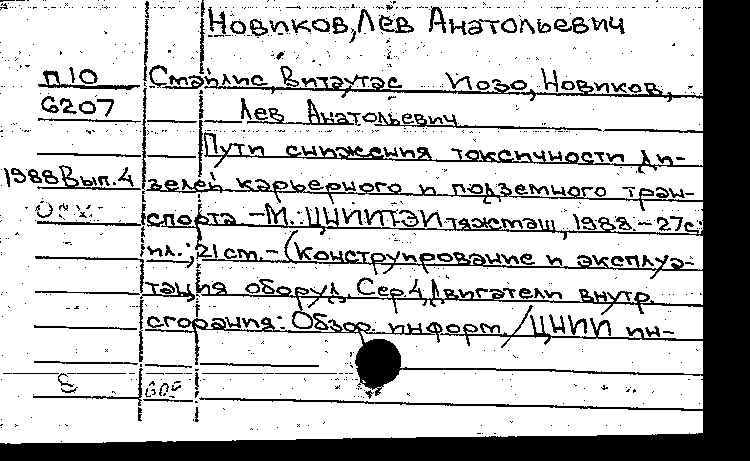 Новиков, Лев Анатольевич
П10 Стаплис, Витаутас Йозо, Новиков,
6207 Лев Анатольевич
Пути снижения токсичности ди-
1988 Вып. 4 зелей карьерного и подземного тран-
спорта - М.: ЦНИИТЭИтяжмаш, 1988. - 27с.:
ил.; 21 см. - (Конструирование и эксплуа-
тация оборуд. Сер 4, Двигатели внутр
сгорания: Обзор. информ. / ЦНИИ ин-